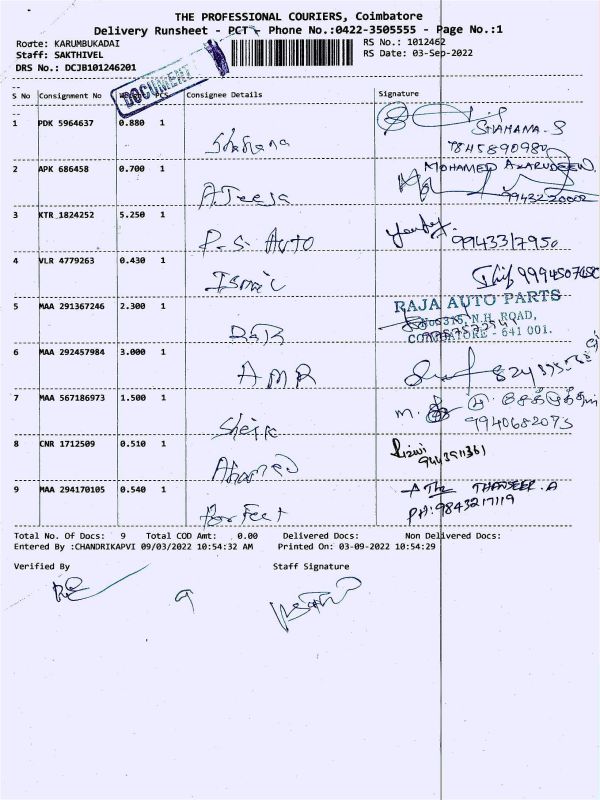 THE PROFESSIONAL COURIERS, Coimbatore
Delivery Runsheet - PCT - Phone No.:0422-3505555 - Page No.:1
Route: KARUMBUKADAI
RS No.: 1012462
Staff: SAKTHIVEL
RS Date: 03-Sep-2022
DRS No.: DCJB101246201
DOCUMENT
S No Consignment No PCS Consignee Details Signature
1 PDK 5964637 0.880 1 Shahana SHAHANA.S
7845890980
2 APK 686458 0.700 1 A.Jeeja MOHAMED AZARUDEEN
9943220002
3 KTR 1824252 5.250 1 P.S. Auto 9943317950
4 VLR 4779263 0.430 1 Ismail
5 MAA 291367246 2.300 1 RAJA AUTO PARTS
N.H. ROAD,
COIMBATORE - 641 001.
6 MAA 292457984 3.000 1 AMR
7 MAA 567186973 1.500 1 Sheik 9940682075
8 CNR 1712509 0.510 1 Ahamed Rizwi
9443911361
9 MAA 294170105 0.540 1 Perfect THANSEER.A
PH:9843217119
Total No. Of Docs: 9 Total COD Amt: 0.00 Delivered Docs: Non Delivered Docs:
Entered By :CHANDRIKAPVI 09/03/2022 10:54:32 AM Printed On: 03-09-2022 10:54:29
Verified By Staff Signature